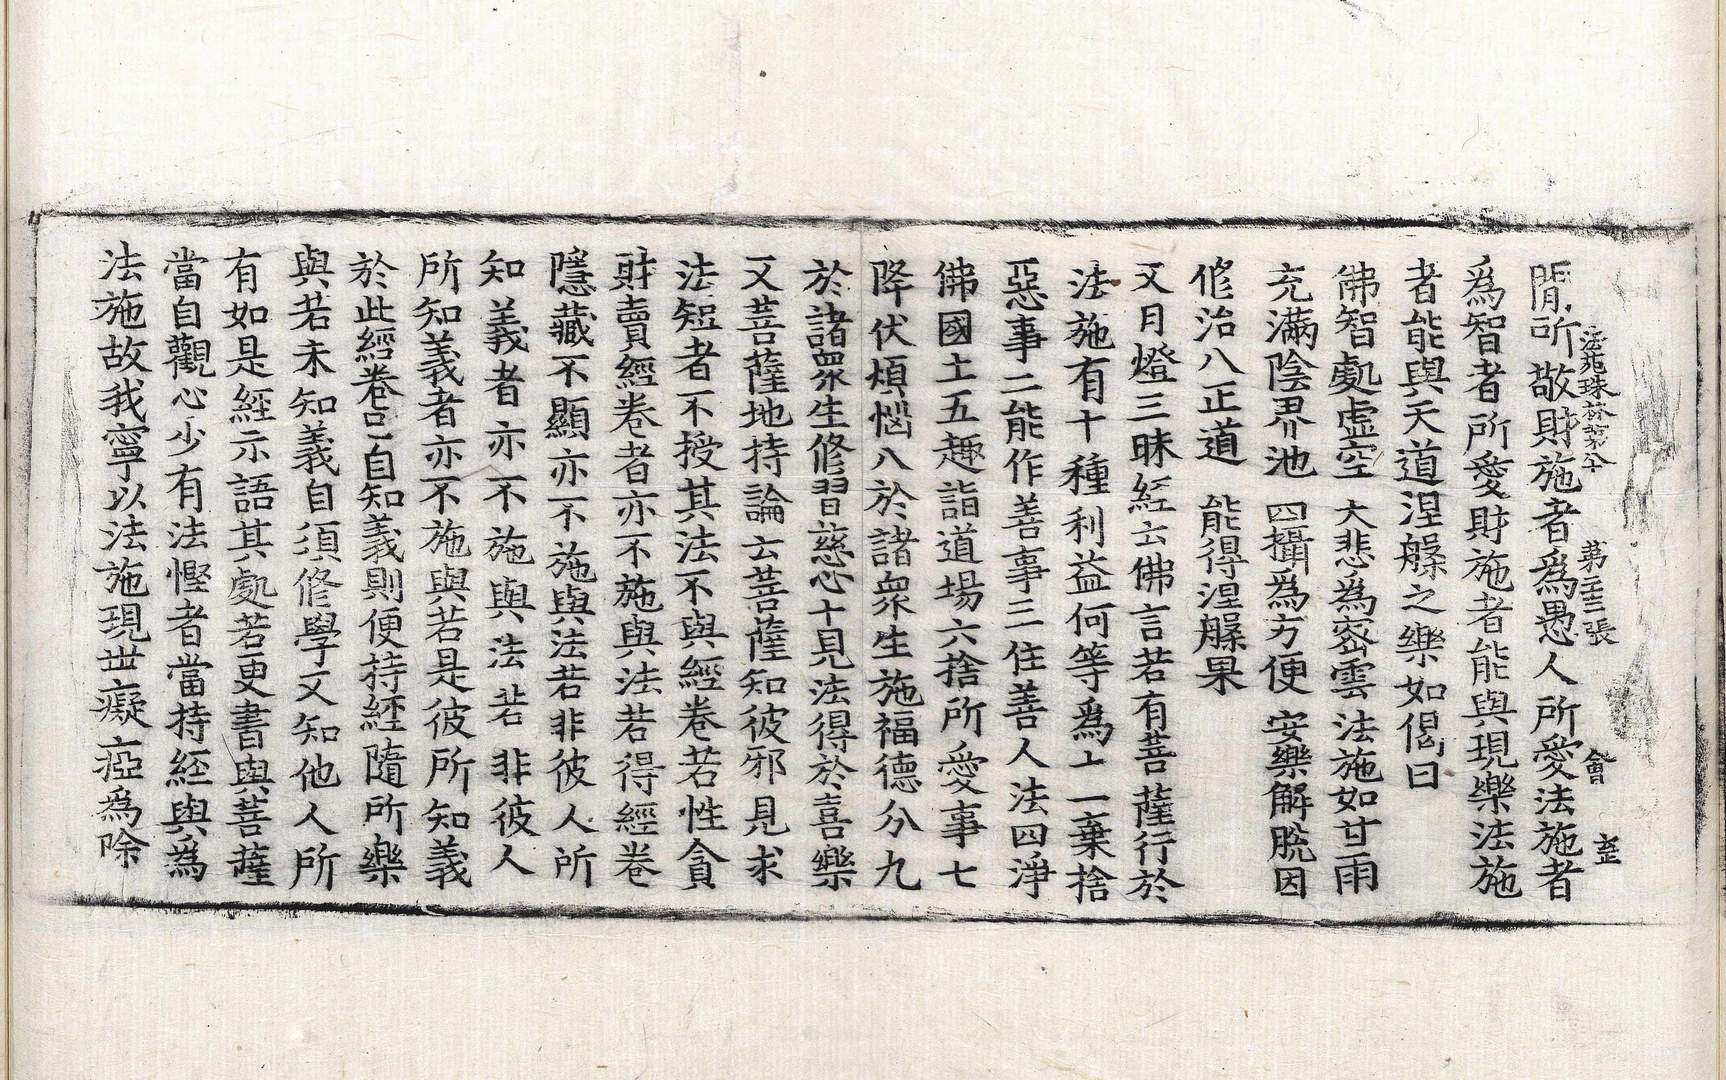 法苑珠林第八十 第二十三張 會 㱏
間所敬財施者為愚人所愛法施者
為智者所愛財施者能與現樂法施
者能與天道涅槃之樂如偈曰
佛智處虛空 大悲為密雲 法施如甘雨
充滿陰界池 四攝為方便 安樂解脫因
修治八正道 能得涅槃果
又月燈三昧經云佛言若有菩薩行於
法施有十種利益何等為十一棄捨
惡事二能作善事三住善人法四淨
佛國土五趣詣道場六捨所愛事七
降伏煩惱八於諸眾生施福德分九
於諸眾生修習慈心十見法得於喜樂
又菩薩地持論云菩薩知彼邪見求
法短者不授其法不與經卷若性貪
財賣經卷者亦不施與法若得經卷
隱藏不顯亦不施與法若非彼人所
知義者亦不施與法若非彼人
所知義者亦不施與若是彼所知義
於此經卷已自知義則便持經隨所樂
與若未知義自須修學又知他人所
有如是經示語其處若更書與菩薩
當自觀心少有法慳者當持經與為
法施故我寧以法施現世癡瘂為除